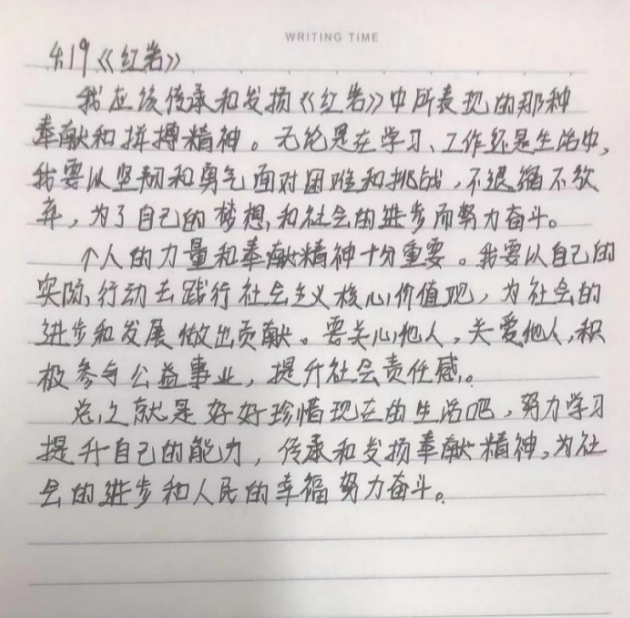 WRITING TIME
4.19《红岩》
我应该传承和发扬《红岩》中所表现的那种
奉献和拼搏精神。无论是在学习、工作还是生活中，
我要以坚韧和勇气面对困难和挑战，不退缩不放
弃，为了自己的梦想和社会的进步而努力奋斗。
个人的力量和奉献精神十分重要。我要以自己的
实际行动去践行社会主义核心价值观，为社会的
进步和发展做出贡献。要关心他人，关爱他人，积
极参与公益事业，提升社会责任感。
总之就是好好珍惜现在的生活吧，努力学习
提升自己的能力，传承和发扬奉献精神，为社
会的进步和人民的幸福努力奋斗。